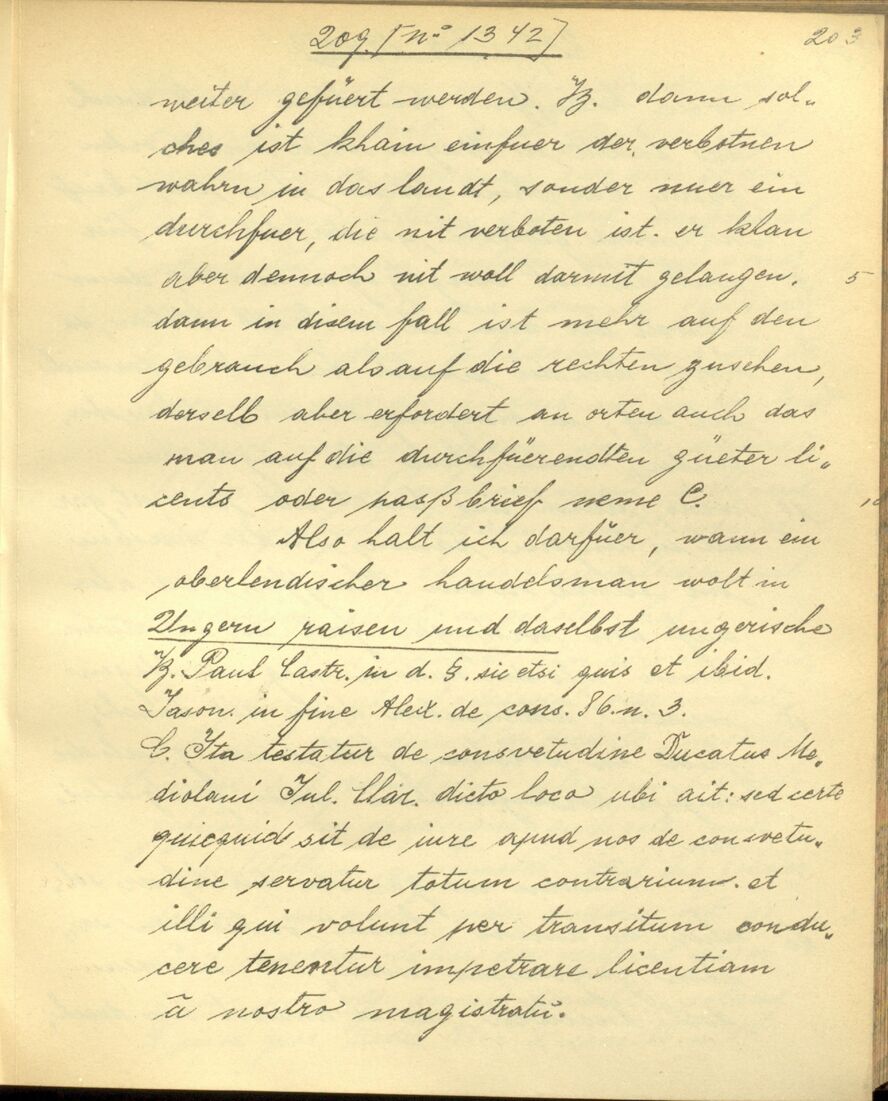 209. [nº 1342]
203
weiter gefüert werden. B. dann sol„
ches ist khain einfuer der verbotnen
wahrn in das landt, sonder nuer ein
durchfuer, die nit verboten ist. er khan
aber dennoch nit woll darmit gelangen. 5
dann in disem fall ist mehr auf den
gebrauch als auf die rechten zusehen,
derselb aber erfordert an orten auch das
man auf die durchfüerendten güeter li„
cents oder passbrief neme C. 10
Also halt ich darfüer, wann ein
oberlendischer handelsman wolt in
Ungern raisen und daselbst ungerische
B. Paul Castr. in d. §. sic etsi quis et ibid.
Jason. in fine Alex. de cons. 86. n. 3.
C. Ita testatur de consvetudine Ducatus Me„
diolani Jul. Clar. dicto loco ubi ait: sed certe
quicquid sit de iure apud nos de consvetu„
dine servatur totum contrarium. et
illi qui volunt per transitum condu„
cere tenentur impetrare licentiam
ā nostro magistratū.